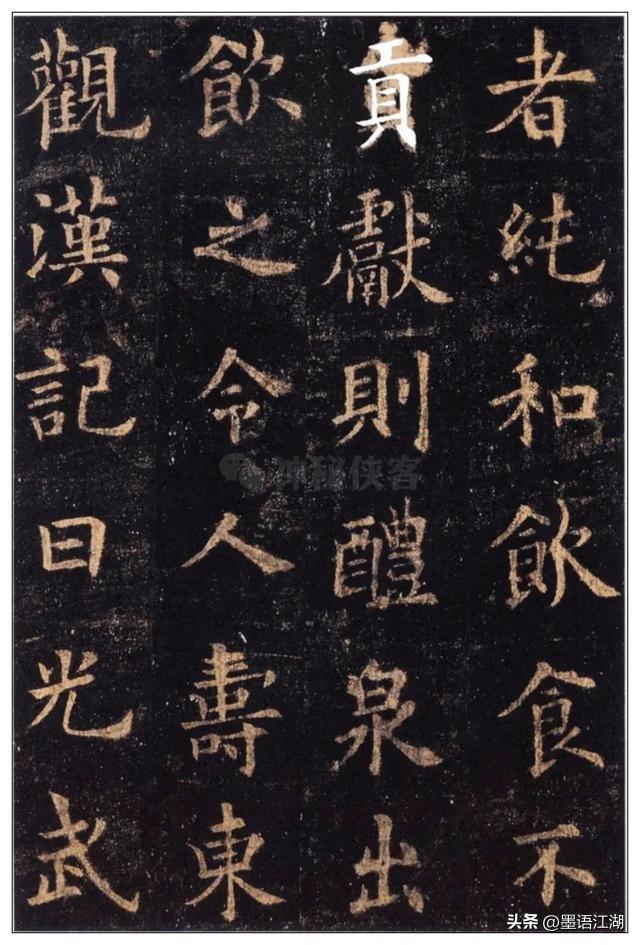 者純和飲食不
貢獻則醴泉出
飲之令人壽東
觀漢記曰光武
神秘侠客
头条 @墨语江湖